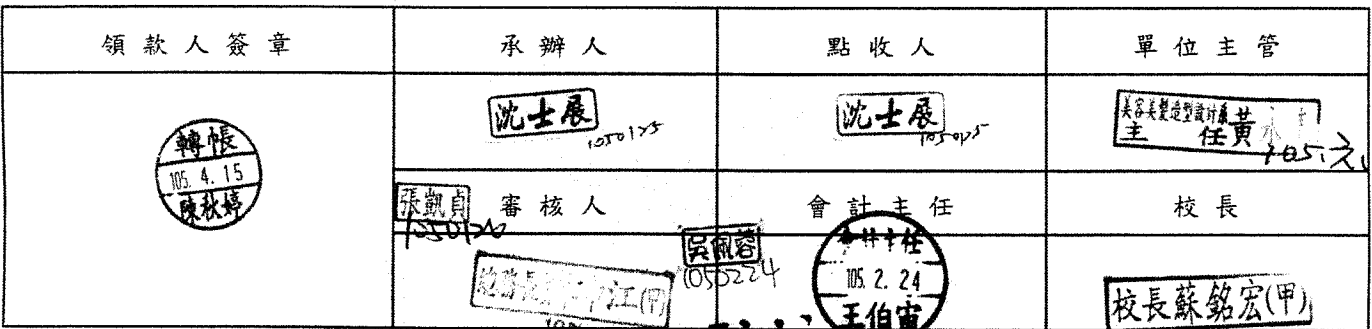 領款人簽章
承辦人
點收人
單位主管
轉帳
105. 4. 15
陳秋婷
沈士展
1050125
沈士展
1050125
美容美髮造型設計系
主任黃
張凱貞
1050126
審核人
會計主任
校長
吳佩蓉
1050224
會計主任
105. 2. 24
王伯宙
校長蘇銘宏(甲)